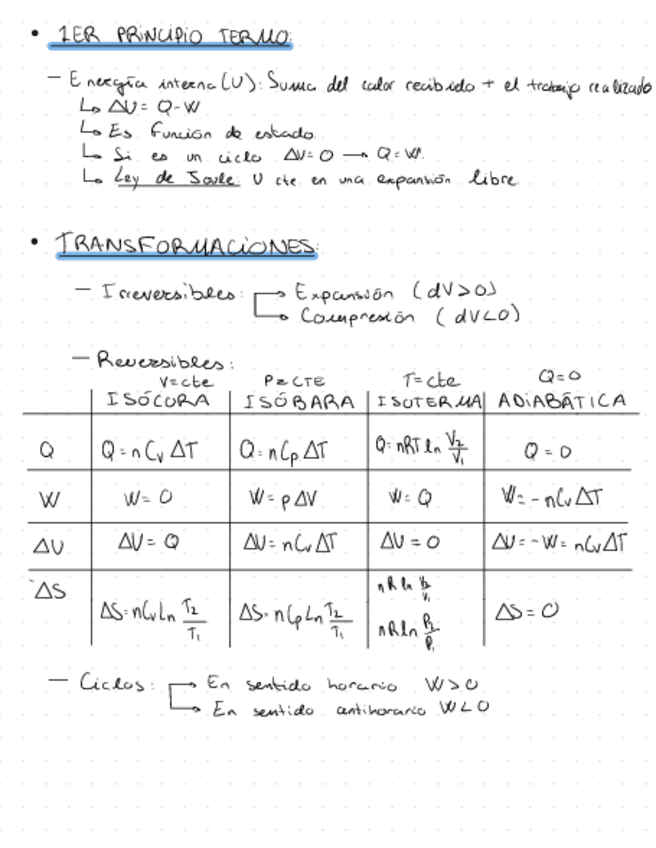 • 1ER PRINCIPIO TERMO:
— Energía interna (U): Suma del calor recibido + el trabajo realizado
↳ ΔU = Q-W
↳ Es función de estado
↳ Si es un ciclo ΔU=0 → Q=W.
↳ Ley de Joule: U cte en una expansión libre
• TRANSFORMACIONES:
— Irreversibles: → Expansión (dV>0)
→ Compresión (dV<0)
— Reversibles:
V=cte P=CTE T=cte Q=0
ISÓCORA ISÓBARA ISOTERMA ADIABÁTICA
Q Q=nCv ΔT Q=nCp ΔT Q=nRT ln V2/V1 Q=0
W W=0 W=pΔV W=Q W=-nCvΔT
ΔU ΔU=Q ΔU=nCvΔT ΔU=0 ΔU=-W=nCvΔT
ΔS ΔS=nCvLn T2/T1 ΔS=nCpLn T2/T1 nR ln V2/V1 ΔS=0
nRln
— Ciclos: → En sentido horario W>0
→ En sentido antihorario W<0